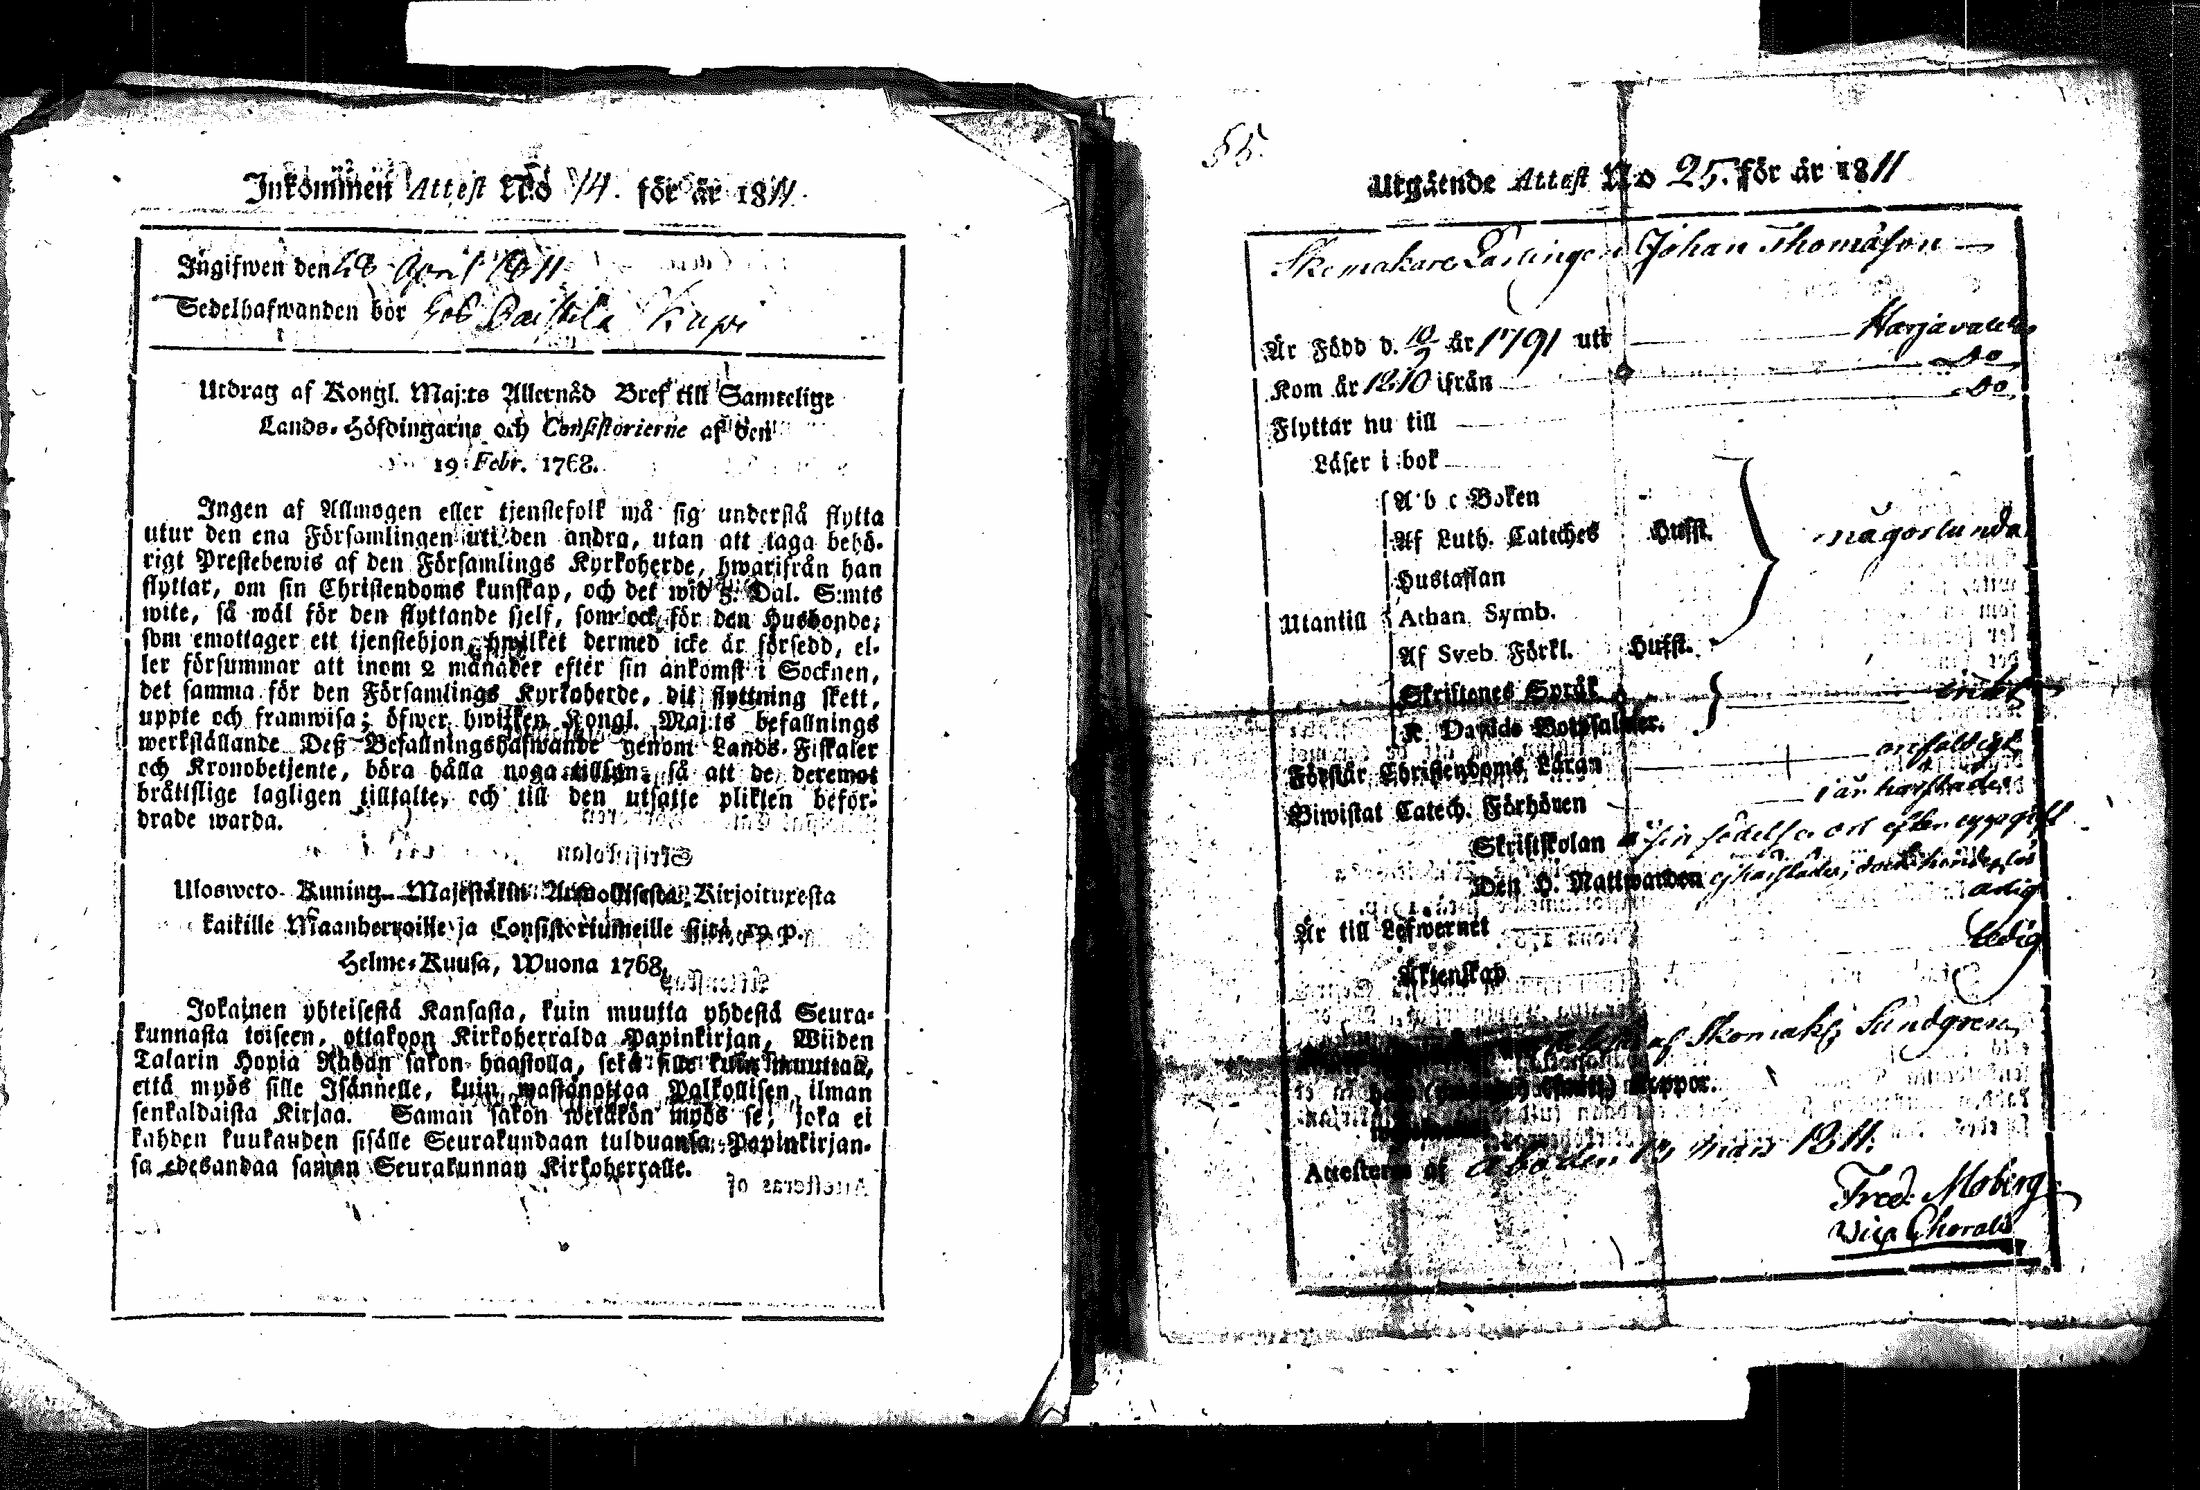 Inkommen Attest No 14. för år 1811.
Ingifwen den 28 April 1811
Sedelhafwanden bor hos
Utdrag af Kongl. Maj:ts Allernåd Bref till Samtelige
Lands-Höfdingarne och Consistorierne af den
19 Febr. 1768.
Ingen af Allmogen eller tjenstefolk må sig understå flytta
utur den ena Församlingen uti den andra, utan att taga behö-
rigt Prestebewis af den Församlings Kyrkoherde, hwarifrån han
flyttar, om sin Christendoms kunskap, och det wid 5. Dal. S:mts
wite, så wäl för den flyttande sjelf, som ock för den Husbonde,
som emottager ett tjenstehjon, hwilket dermed icke är försedd, el-
ler försummar att inom 2 månader efter sin ankomst i Socknen,
det samma för den Församlings Kyrkoherde, dit flyttning skett,
uppte och framwisa; öfwer hwilken Kongl. Maj:ts befallnings
werkställande Deß Befallningshafwande genom Lands-Fiskaler
och Kronobetjente, böra hålla noga tillsyn, så att de deremot
bråttslige lagligen tilltalte, och till den utsatte plikten befor-
drade warda.
Ulosweto Kuning. Majestätin Armollisesta Kirjoituxesta
kaikille Maanherroille ja Consistoriumeille siitä 19 p.
Helme-Kuusa, Wuona 1768.
Jokainen yhteisestä Kansasta, kuin muutta yhdestä Seura-
kunnasta toiseen, ottakoon Kirkoherralda Papinkirjan, Wiiden
Talarin Hopia Rahan sakon haastolla, sekä sille kuin muuttaa,
että myös sille Isännelle, kuin wastanottaa Palkollisen ilman
senkaldaista Kirjaa. Saman sakon wetäkön myös se, joka ei
kahden kuukauden sisälle Seurakundaan tulduansa Papinkirjan-
sa edesandaa saman Seurakunnan Kirkoherralle.
55.
Utgående Attest No 25. för år 1811
Skomakare Lärlingen Johan Thomasson
Är Född d. 10/9 år 1791 uti Harjavalda
Kom år 1810 ifrån do
Flyttar nu till do
Läser i bok
A b c Boken
Af Luth. Cateches Hufst. någorlunda
Hustaflan
Utantill Athan. Symb.
Af Sveb. Förkl. Hufst.
Skriftenes Språk intet
K. Davids Botpsalmer.
Förstår Christendoms Läran enfaldigt
Biwistat Catech. Förhören i år härstädes
Skriftskolan i sin födelse ort efter uppgift
Den H. Nattwarden ej härstädes;
Är till Lefwernet ärlig
Äktenskap ledig
af Skomak: Sundgren
koppor.
Attesteras af Åbo den 13 Mars 1811.
Fred. Moberg
Vice Choralis